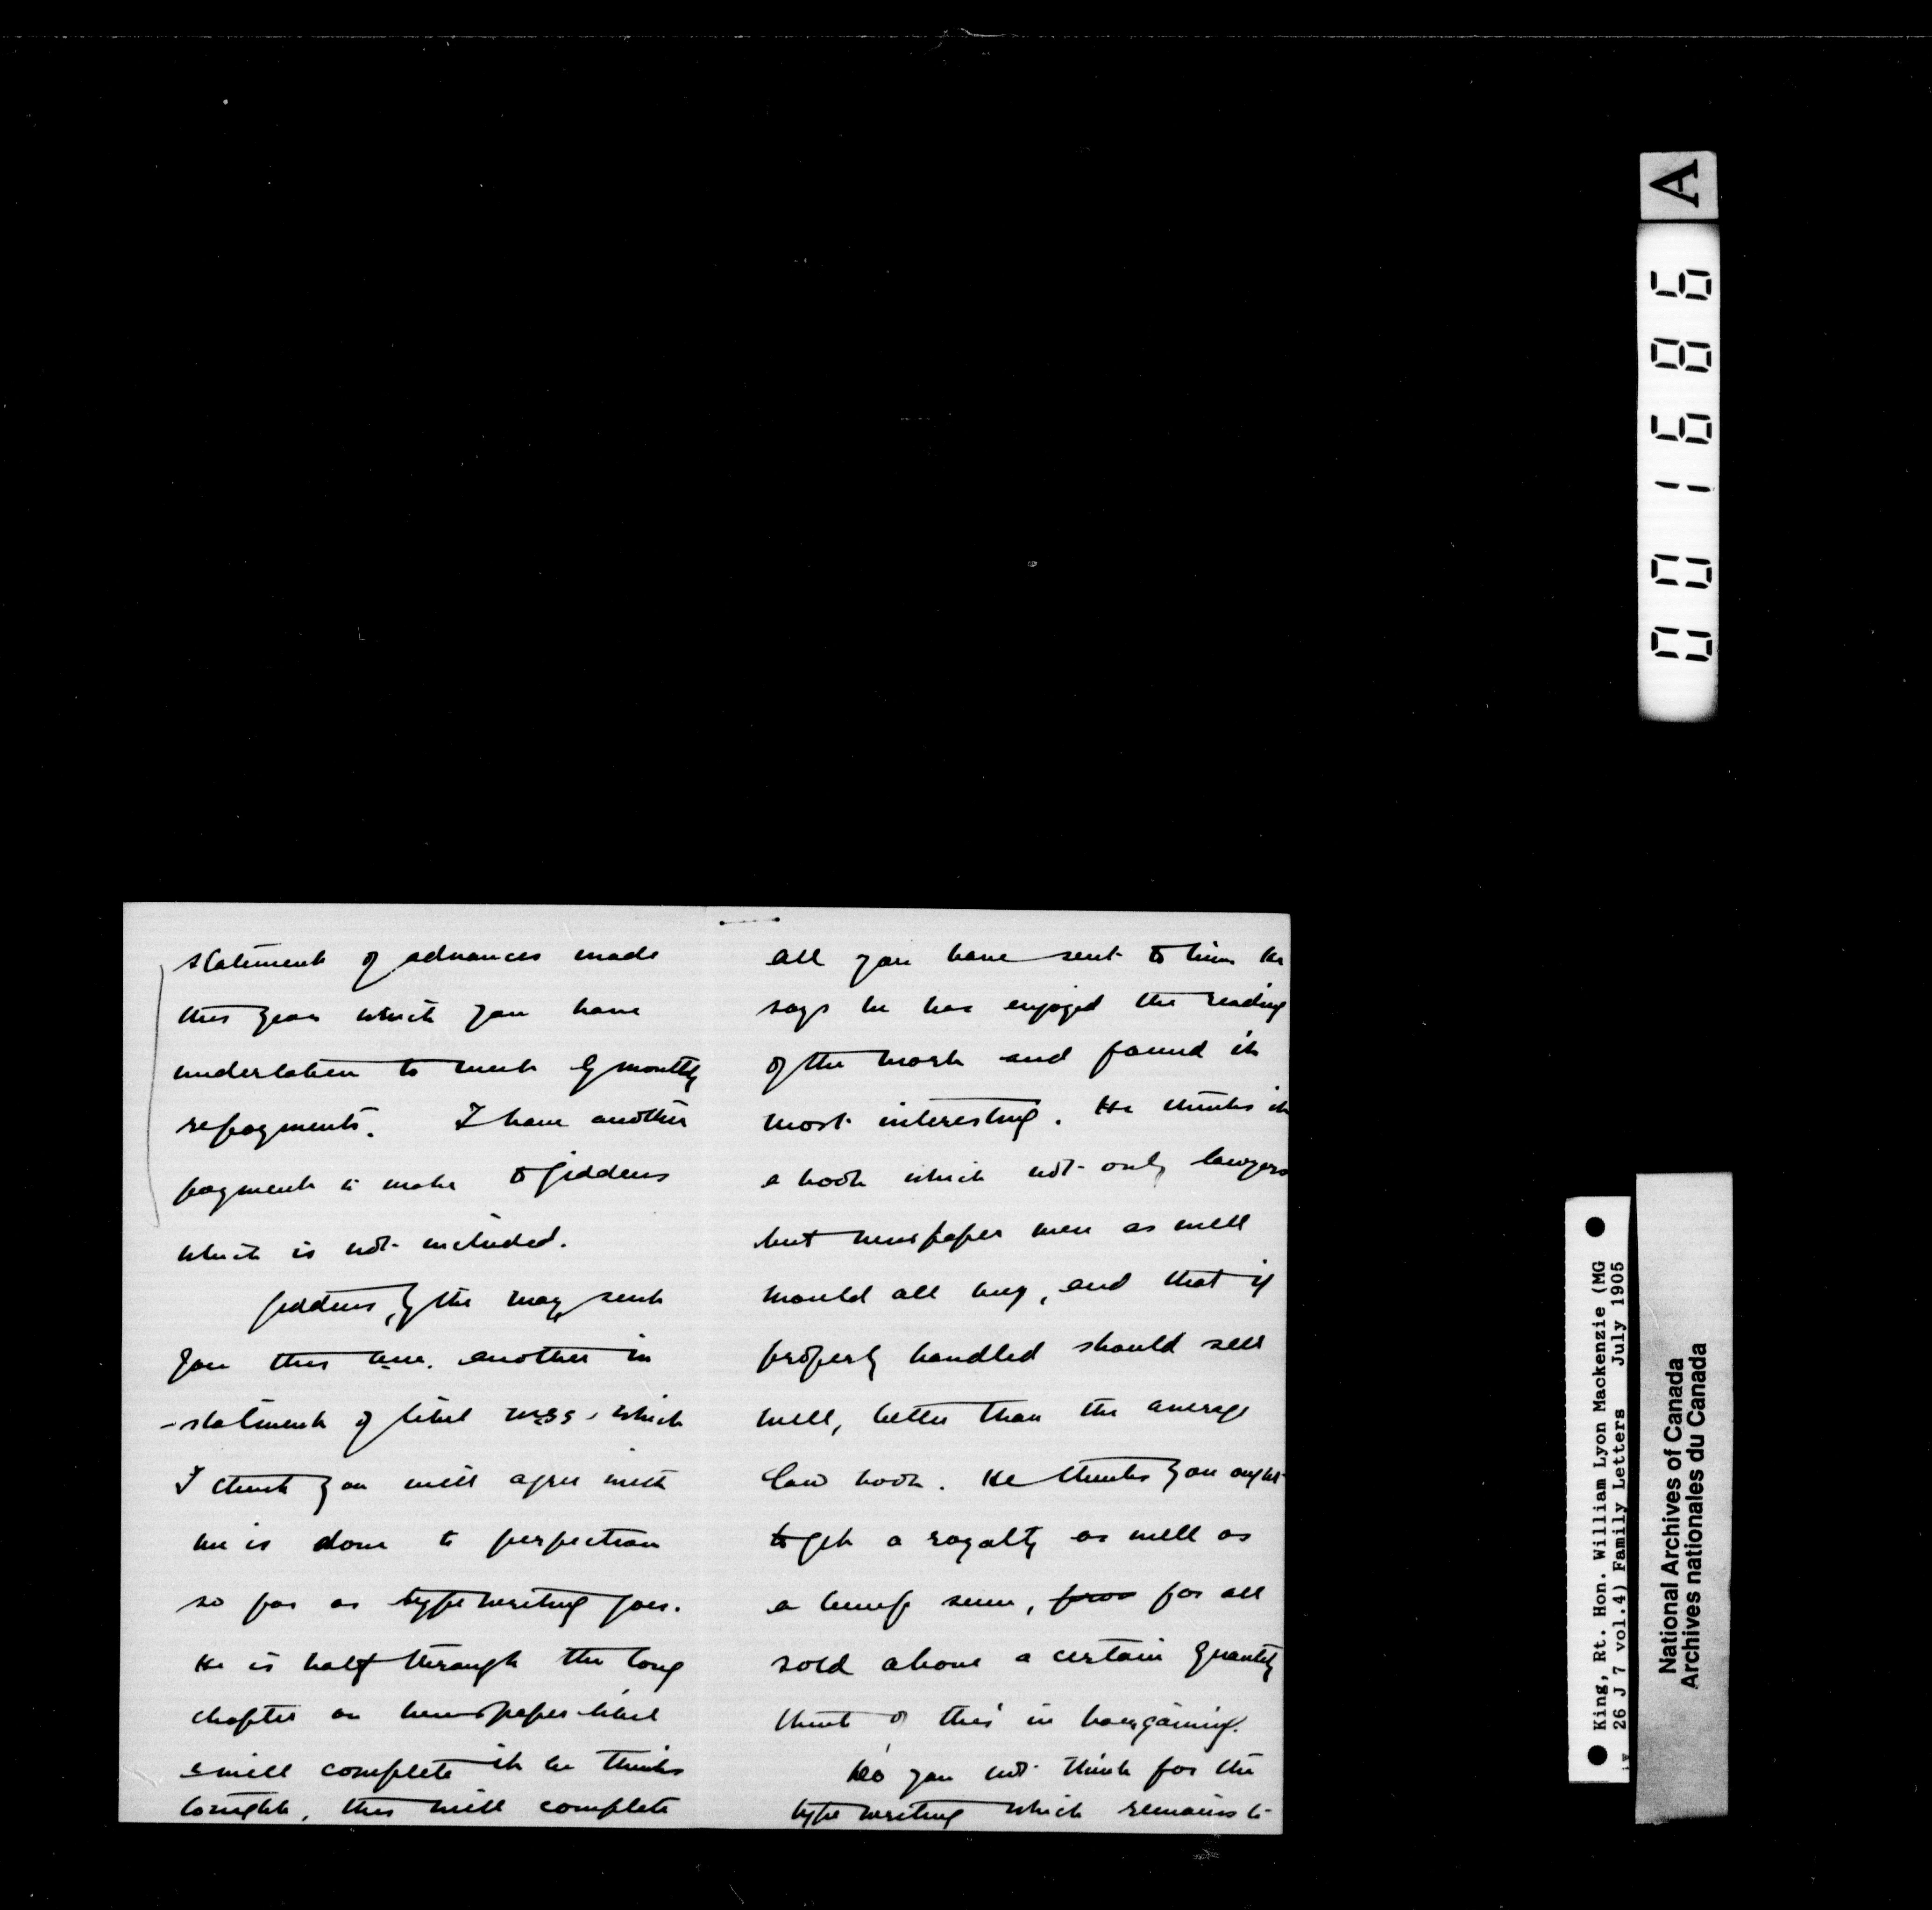 statement of advances made
this year which you have
undertaken to meet by monthly
repayments. I have another
payment to make to Giddens
which is not included.
Giddens, by the way, sent
you this a.m. another in
-stalment of libel mss. which
I think you will agree with
me is done to perfection
so far as typewriting goes.
He is half through the long
chapter on newspaper libel
& will complete it he thinks
tonight, this will complete
all you have sent to him He
says he has enjoyed the reading
of the work and found it
most interesting. He thinks it
a book which not only lawyers
but newspaper men as well
would all buy, and that if
properly handled should sell
well, better than the average
law book. He thinks you ought
to get a royalty as well as
a lump sum, for all
sold above a certain quantity
think of this in bargaining.
Do you not think for the
typewriting which remains to
A
001686
King, Rt. Hon. William Lyon Mackenzie (MG
26 J 7 vol.4) Family Letters July 1905
National Archives of Canada
Archives nationales du Canada